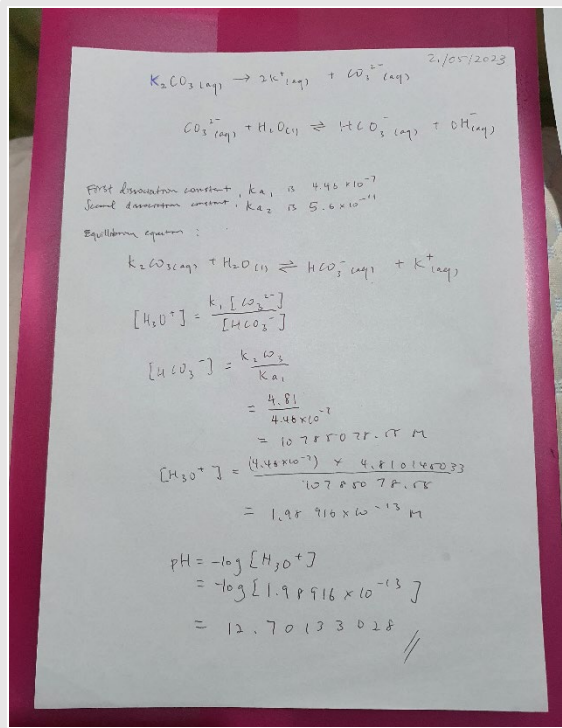 21/05/2023
K₂CO₃ (aq) → 2K⁺ (aq) + CO₃²⁻ (aq)
CO₃²⁻ (aq) + H₂O (l) ⇌ HCO₃⁻ (aq) + OH⁻ (aq)
First dissociation constant, Ka₁ is 4.46 × 10⁻⁷
Second dissociation constant, Ka₂ is 5.6 × 10⁻¹¹
Equilibrium equation :
K₂CO₃ (aq) + H₂O (l) ⇌ HCO₃⁻ (aq) + K⁺ (aq)
[H₃O⁺] = K₁ [CO₃²⁻] / [HCO₃⁻]
[HCO₃⁻] = K₂CO₃ / Ka₁
= 4.81 / 4.46 × 10⁻⁷
= 10785078.55 M
[H₃O⁺] = (4.46 × 10⁻⁷) × 4.810145033 / 10785078.55
= 1.98916 × 10⁻¹³ M
pH = -log [H₃O⁺]
= -log [1.98916 × 10⁻¹³]
= 12.70133028 //